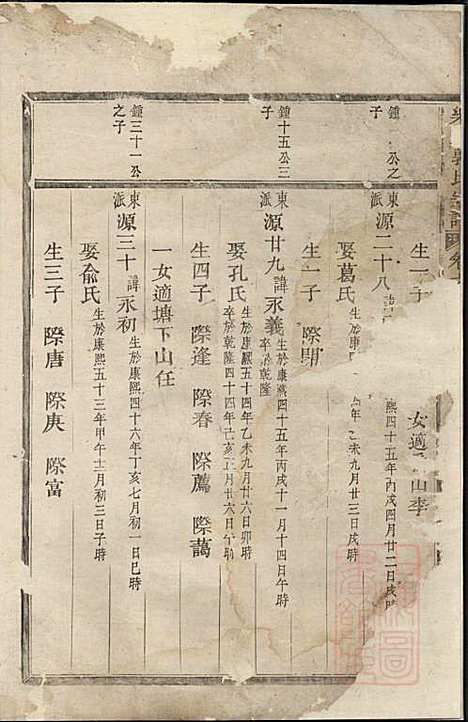 郭氏宗譜
生一子
女適 山李
鍾 公之子
東派 源二十八 諱
熙四十五年丙戌四月廿二日戌時
娶葛氏 生於康
年 乙未九月廿三日戌時
生一子 際明
鍾十五公三子
東派 源廿九 諱永義 生於康熙四十五年丙戌十一月十四日午時
卒於乾隆
娶孔氏 生於康熙五十四年乙未九月廿六日卯時
卒於乾隆四十四年亡亥五月廿六日午時
生四子 際逢 際春 際薦 際藹
一女適塘下山任
鍾三十一公之子
東派 源三十 諱永初 生於康熙四十六年丁亥七月初一日巳時
娶俞氏 生於康熙五十三年甲午十二月初三日子時
生三子 際唐 際庚 際富